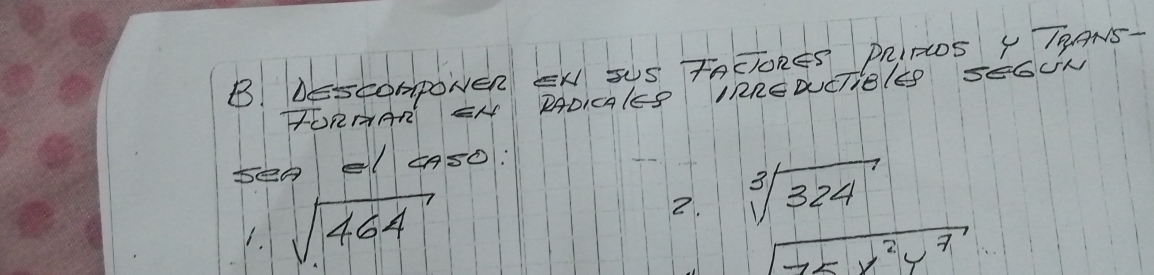 B. DESCOMPONER EN SUS FACTORES PRIMOS Y TRANS-
FORMAR EN RADICALES IRREDUCTIBLES SEGÚN
SEA el CASO:
1. √464 2. ∛324
√75 x²y⁷